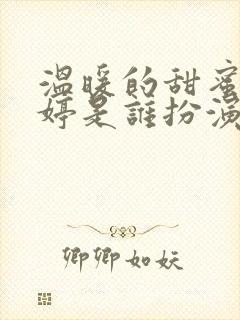 温暖的甜蜜
婷是誰扮演
卿卿如妖